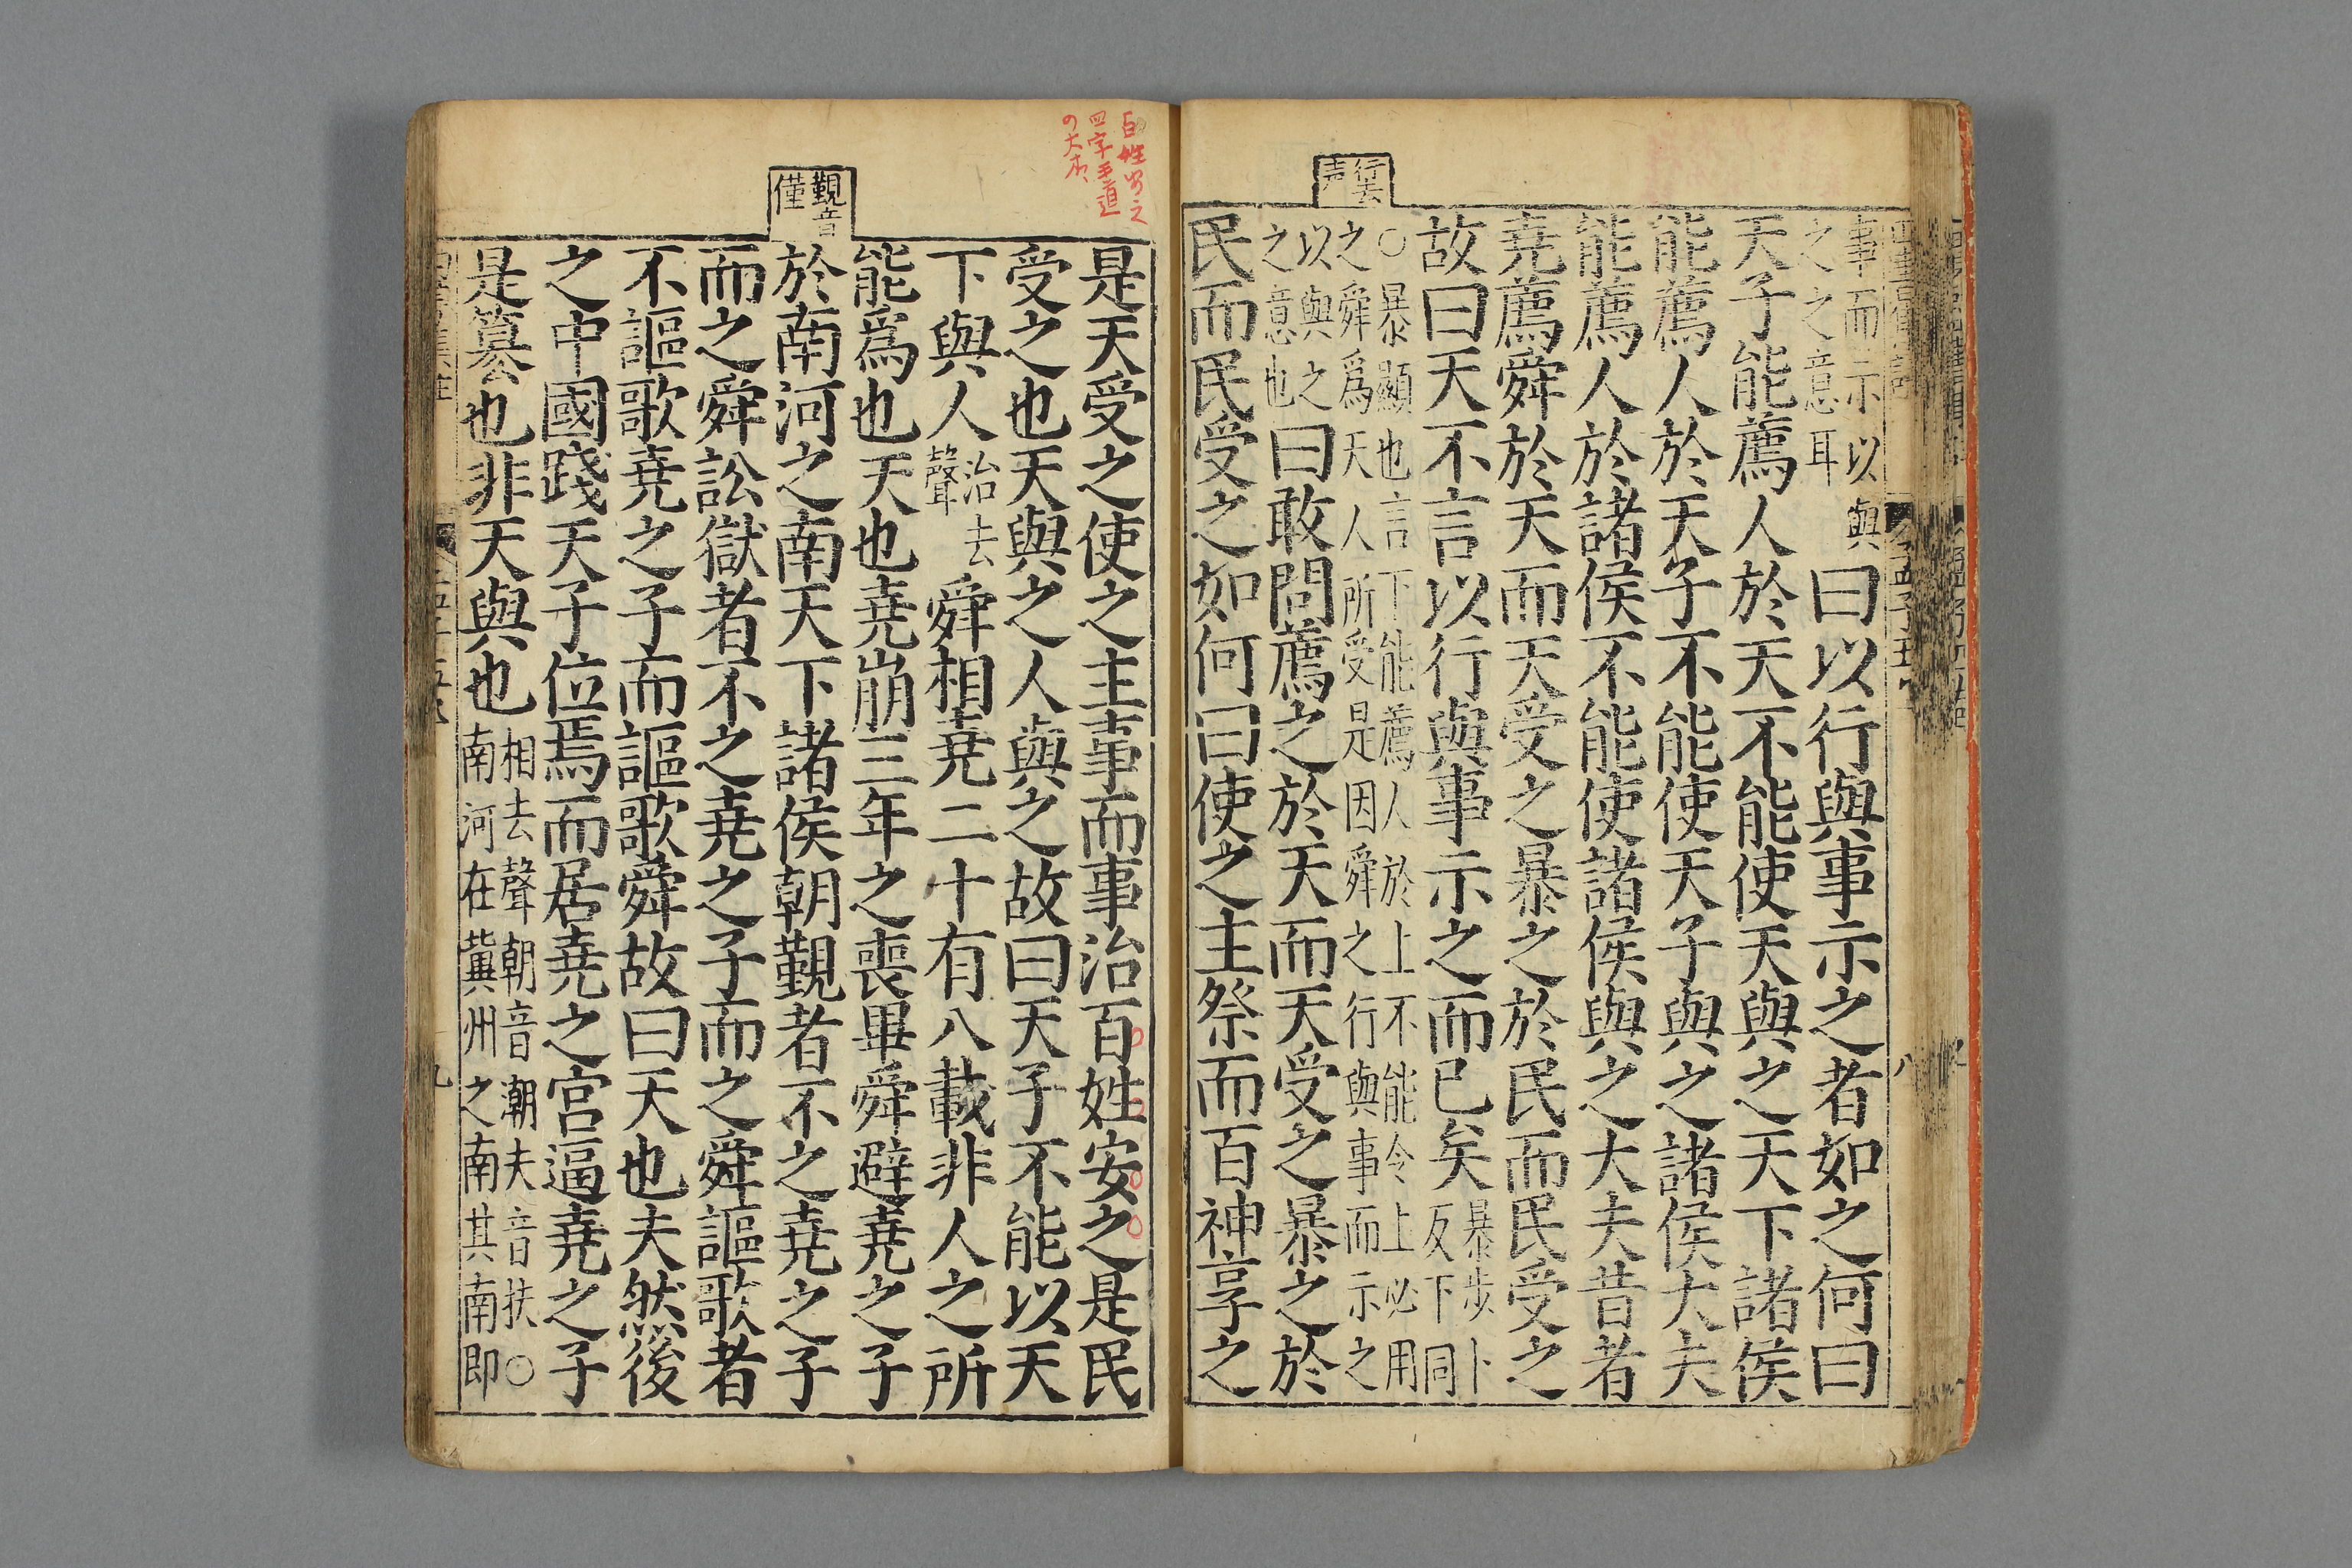 行去
声
事而示以與
之之意耳
曰以行與事示之者如之何曰
天子能薦人於天不能使天與之天下諸侯
能薦人於天子不能使天子與之諸侯大夫
能薦人於諸侯不能使諸侯與之大夫昔者
堯薦舜於天而天受之暴之於民而民受之
故曰天不言以行與事示之而已矣
暴步卜
反下同
○暴顯也言下能薦人於上不能令上必用
之舜爲天人所受是因舜之行與事而示之
以與之
之意也
曰敢問薦之於天而天受之暴之於
民而民受之如何曰使之主祭而百神享之
百姓安之
四字王道
の大本
覲音
僅
是天受之使之主事而事治百姓安之是民
受之也天與之人與之故曰天子不能以天
下與人
治去
聲
舜相堯二十有八載非人之所
能爲也天也堯崩三年之喪畢舜避堯之子
於南河之南天下諸侯朝覲者不之堯之子
而之舜訟獄者不之堯之子而之舜謳歌者
不謳歌堯之子而謳歌舜故曰天也夫然後
之中國踐天子位焉而居堯之宮逼堯之子
是篡也非天與也
相去聲朝音潮夫音扶○
南河在冀州之南其南即
九